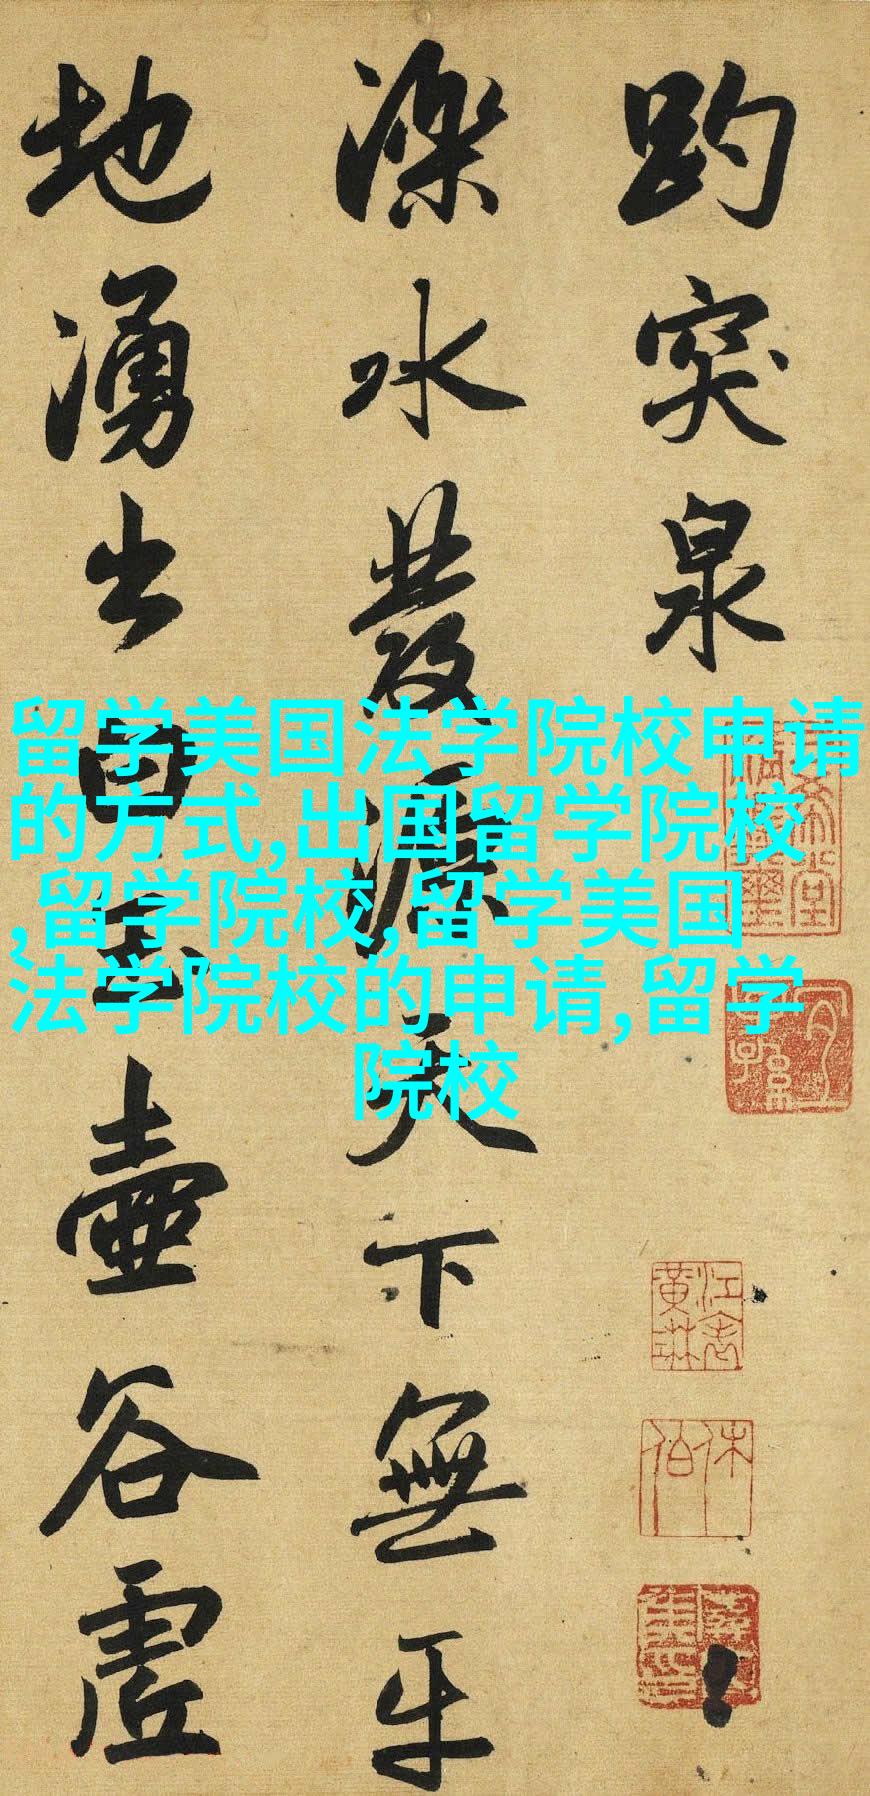 趵突泉
濼水發源天下無
地湧出白玉壺谷虛
留学美国法学院校申请
的方式,出国留学院校
,留学院校,留学美国
法学院校的申请,留学
院校